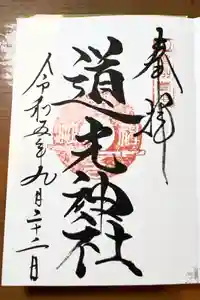 奉拝
道尾神社
令和五年九月二十二日